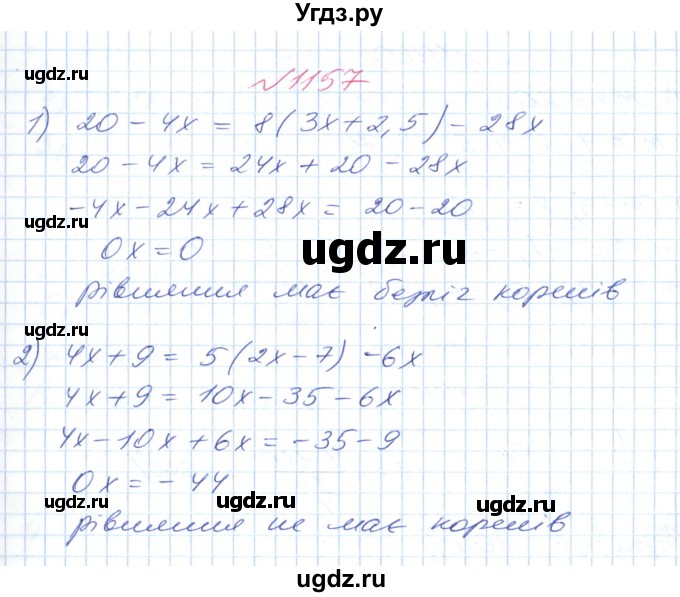 Угдз.ру
ugdz.ru
№1157
1) 20 - 4x = 8(3x + 2,5) - 28x
20 - 4x = 24x + 20 - 28x
-4x - 24x + 28x = 20 - 20
ugdz.ru
ugdz.ru
0x = 0
рівняння має безліч коренів
ugdz.ru
2) 4x + 9 = 5(2x - 7) - 6x
4x + 9 = 10x - 35 - 6x
4x - 10x + 6x = -35 - 9
0x = -44
ugdz.ru
ugdz.ru
ugdz.ru
рівняння не має коренів
ugdz.ru